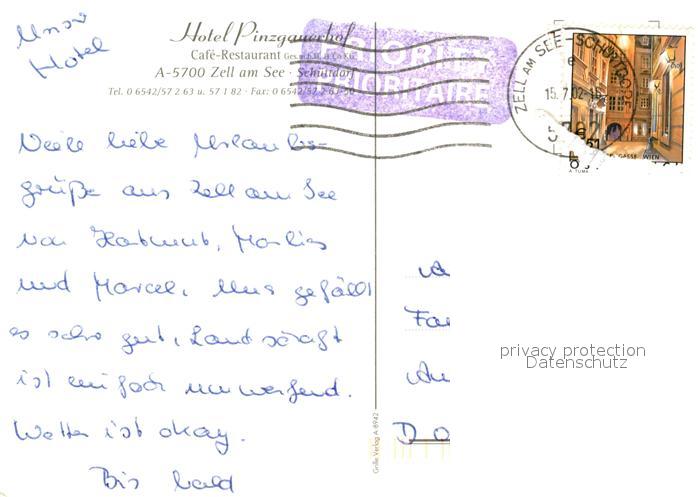 Unser
Hotel
Hotel Pinzgauerhof
Café-Restaurant Ges.m.b.H. & Co KG
A-5700 Zell am See · Schüttdorf
Tel. 0 6542/57 2 63 u. 57 1 82 · Fax: 0 6542/57 2 63
PRIORITY
PRIORITAIRE
ZELL AM SEE-SCHÜTTDORF
15.7.02
5702
GASSE WIEN
A. TUMA
Viele liebe Urlaubs-
grüße aus Zell am See
von Hartmut, Marlies
und Marcel. Uns gefällt
es sehr gut, Landschaft
ist einfach umwerfend.
Wetter ist okay.
Bis bald
Fa
An
D
Große Verlag A-8942
privacy protection
Datenschutz